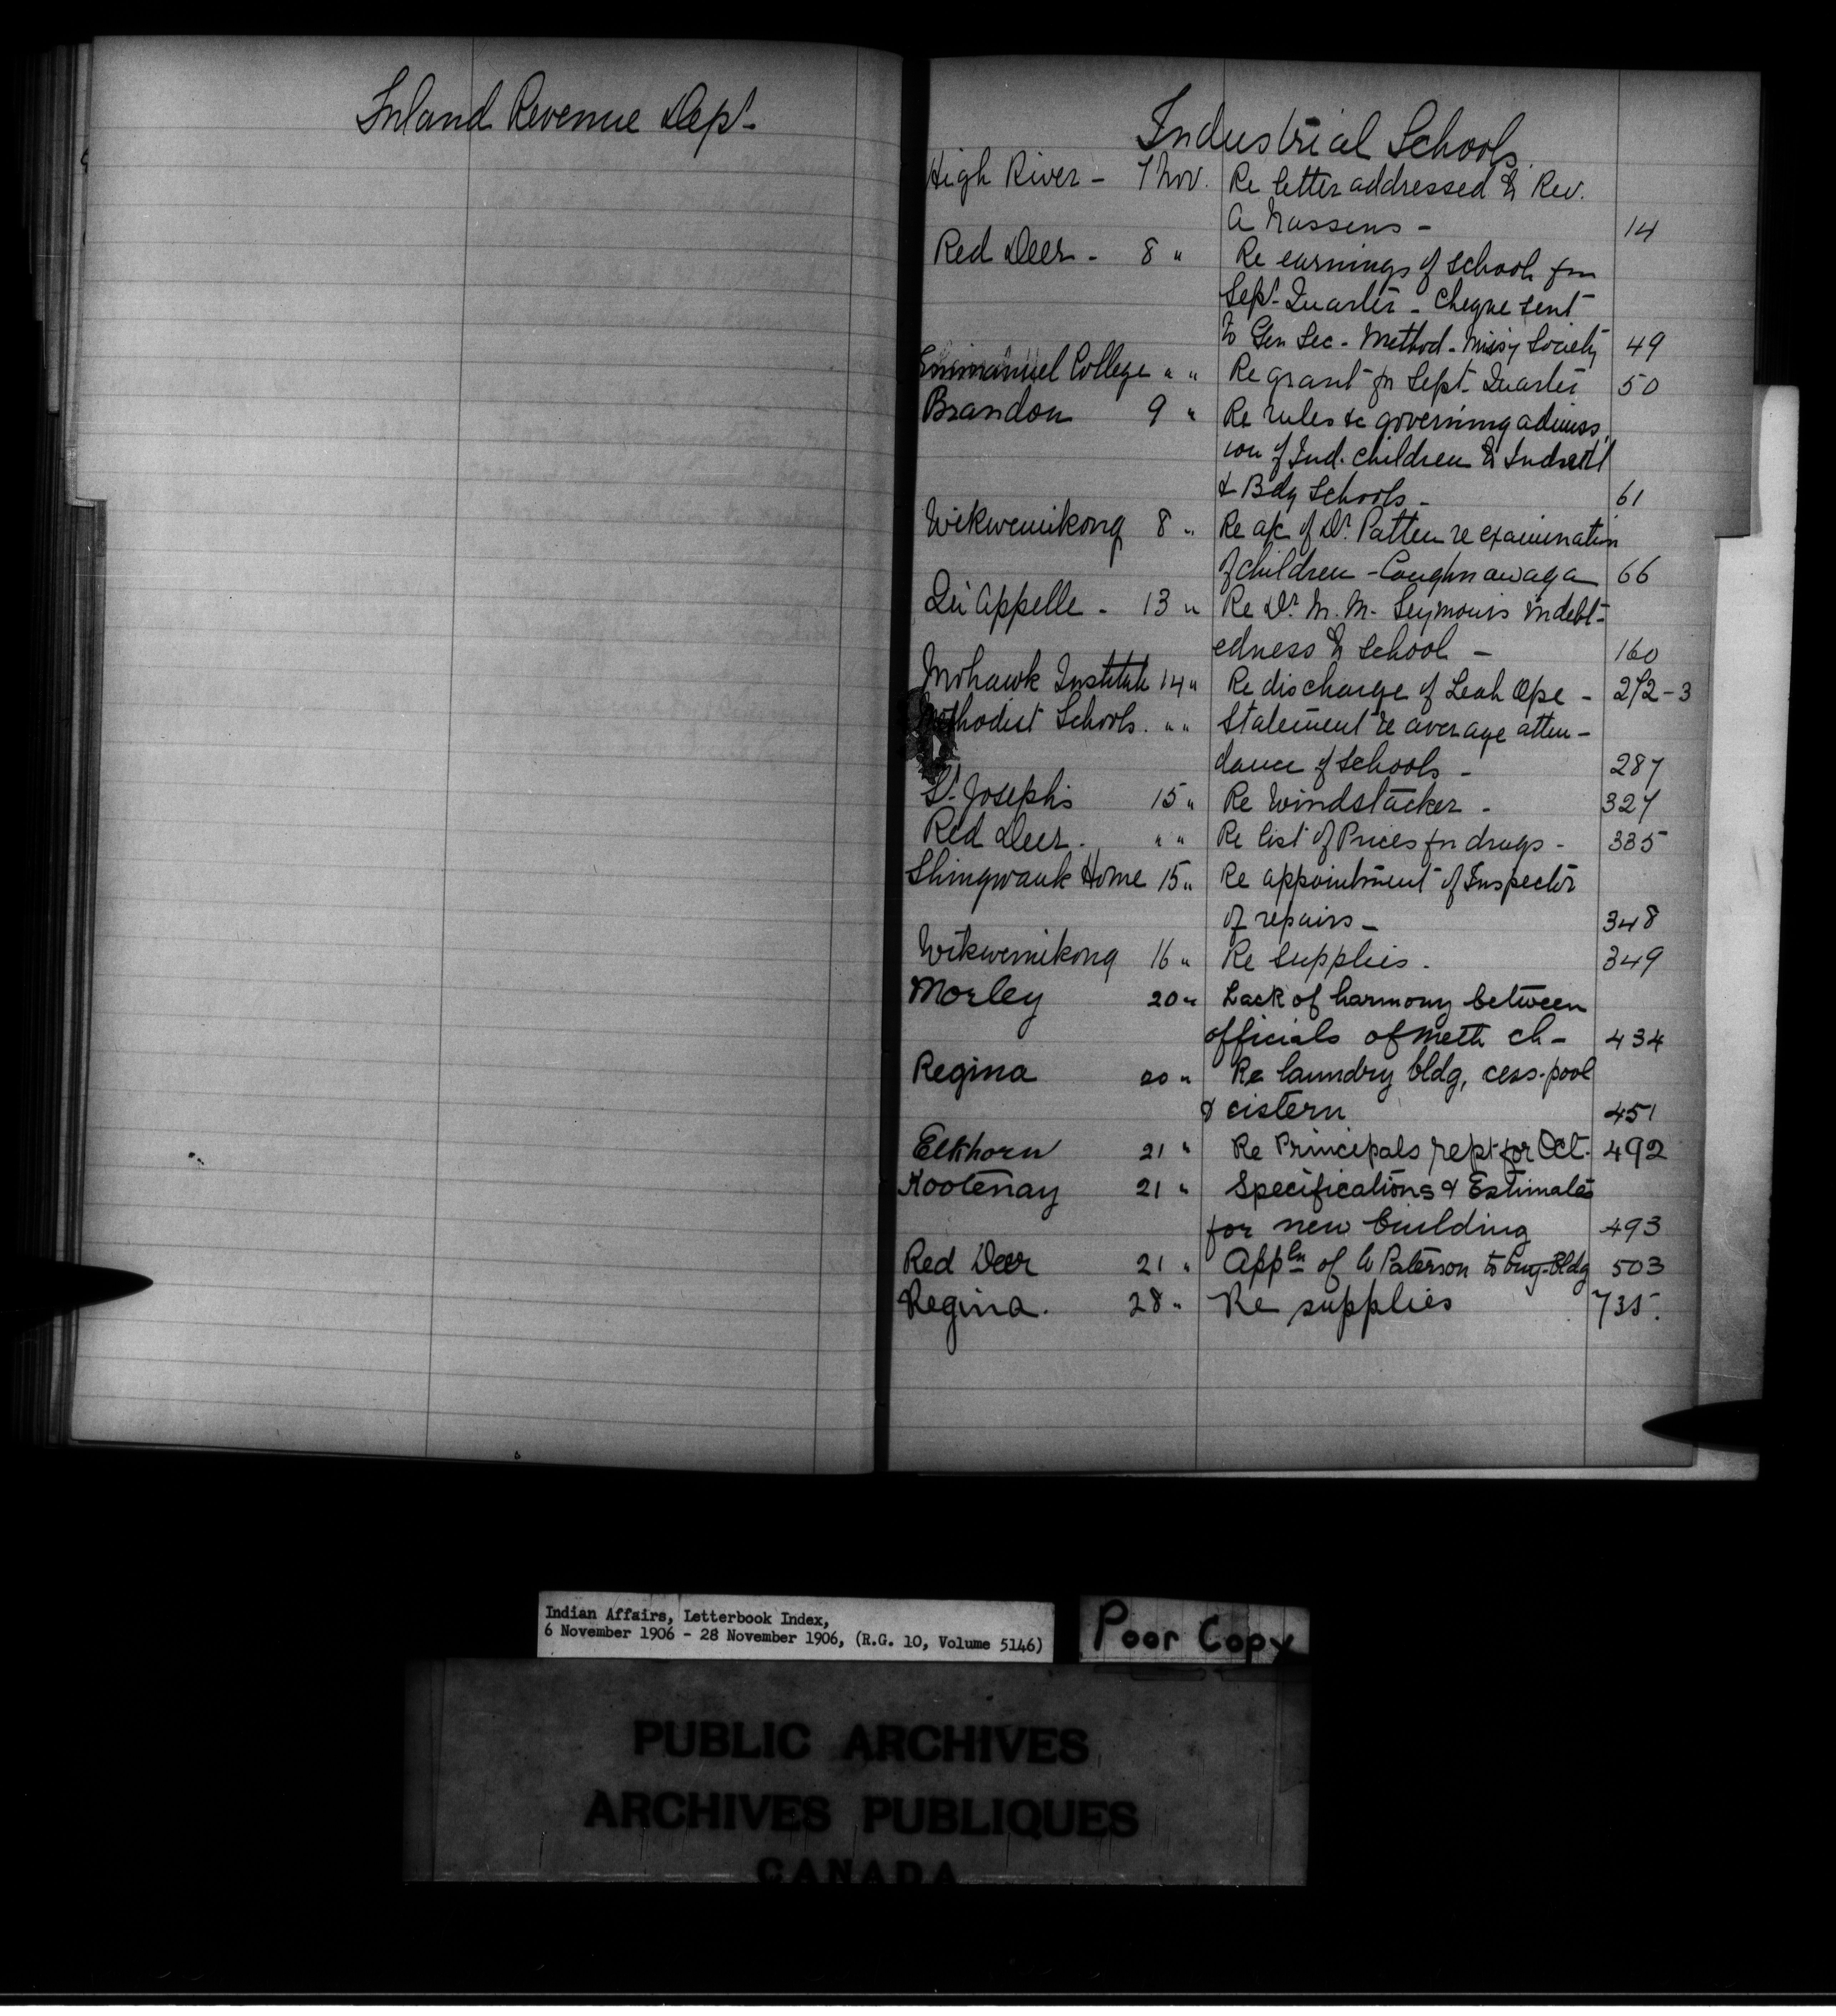 Inland Revenue Dept.
Industrial Schools.
High River - 7 Nov. Re letter addressed to Rev.
A Nassens - 14
Red Deer - 8 " Re earnings of school for
Sept. Quarter - Cheque sent
to Gen Sec - Method - Miss'y Society 49
Emmanuel College " " Re grant for Sept. Quarter 50
Brandon 9 " Re rules &c governing admiss
ion of Ind. children to Indust'l
& Bdg Schools - 61
Wikwemikong 8 " Re a/c of Dr. Patten re examination
of children - Caughnawaga 66
Qu'Appelle - 13 " Re Dr. M. M. Seymour's indebt-
edness to school - 160
Mohawk Institute 14 " Re discharge of Leah - 272-3
Methodist Schools. " " Statement re average atten-
dance of schools - 287
St. Joseph's 15 " Re Windstacker - 327
Red Deer. " " Re list of Prices for drugs - 335
Shingwauk Home 15 " Re appointment of Inspector
of repairs - 348
Wikwemikong 16 " Re supplies. 349
Morley 20 " Lack of harmony between
officials of Meth ch - 434
Regina 20 " Re laundry bldg, cess-pool
& cistern 451
Elkhorn 21 " Re Principals rept for Oct. 492
Kootenay 21 " Specifications & Estimates
for new building 493
Red Deer 21 " Appln of Paterson to Bldg 503
Regina. 28 " Re supplies 735.
Indian Affairs, Letterbook Index,
6 November 1906 - 28 November 1906, (R.G. 10, Volume 5146)
Poor Copy
PUBLIC ARCHIVES
ARCHIVES PUBLIQUES
CANADA